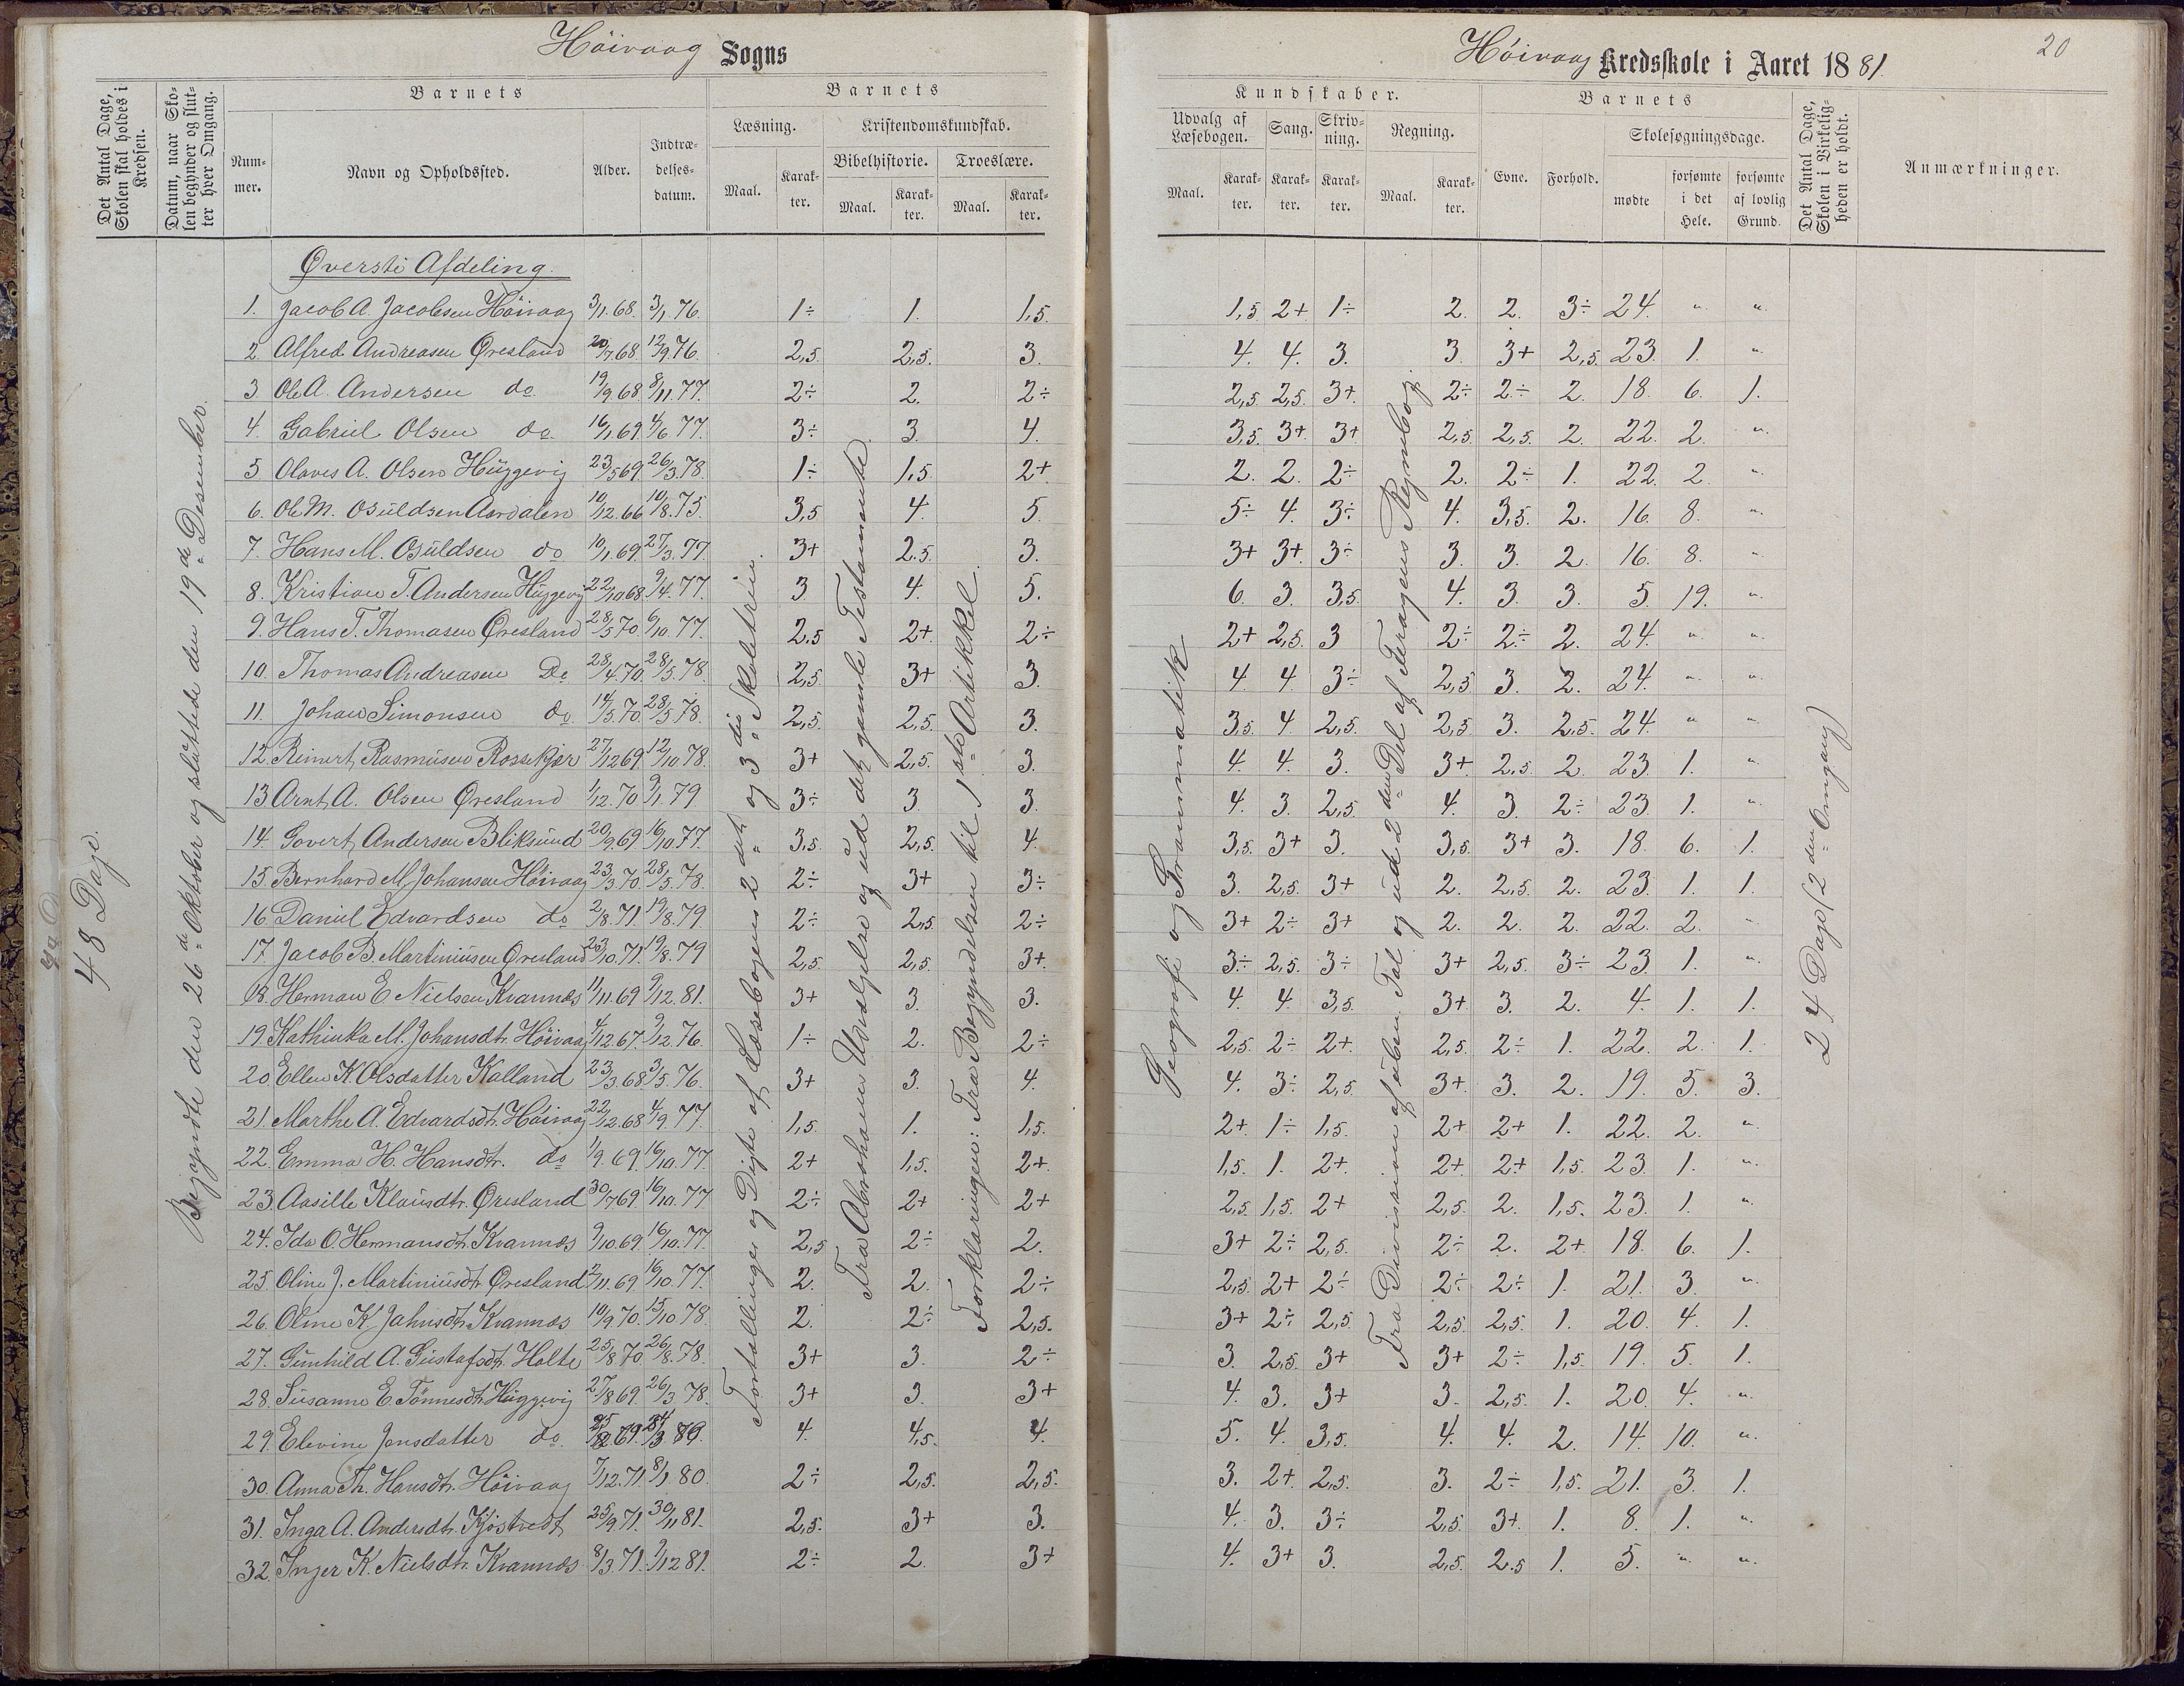 Höivaag Sogns
Höivaag Kredsskole i Aaret 1881.
20
Det Antal Dage, Skolen skal holdes i Kredsen.
Datum, naar Skolen begynder og slutter hver Omgang.
Barnets
Nummer.
Navn og Opholdssted.
Alder.
Indtrædelsesdatum.
Barnets
Læsning.
Maal.
Karakter.
Kristendomskundskab.
Bibelhistorie.
Maal.
Karakter.
Troeslære.
Maal.
Karakter.
Kundskaber.
Udvalg af Læsebogen.
Maal.
Karakter.
Sang.
Karakter.
Skrivning.
Karakter.
Regning.
Maal.
Karakter.
Barnets
Evne.
Forhold.
Skolesøgningsdage.
mødte
forsømte i det Hele.
forsømte af lovlig Grund.
Det Antal Dage, Skolen i Virkeligheden er holdt.
Anmærkninger.
48 Dage.
Begyndte den 26de Oktober og sluttede den 19de Desember.
Fortællinger og Digte af Læsebogens 2det og 3die Skoletrin.
Fra Abrahams Udvælgelse og ud det gamle Testamente
Forklaringen: Fra Begyndelsen til 1ste Artikkel.
Geografi og Grammatik
Fra Division af uben. Tal og ud 2den Del af Feragens Regnebog.
24 Dage (2den Omgang)
Øverste Afdeling.
1. Jacob A. Jacobsen Höivaag 3/1.68. 3/1.76. 1÷ 1. 1,5. 1,5 2+ 1÷ 2. 2. 3÷ 24. " "
2. Alfred Andreasen Øresland 20/7.68. 12/9.76. 2,5. 2,5. 3. 4. 4. 3. 3. 3+ 2,5. 23. 1. "
3. Ole A. Andersen do 19/9.68. 8/11.77. 2÷ 2. 2÷ 2,5. 2,5. 3+. 2÷ 2÷ 2. 18. 6. 1.
4. Gabriel Olsen do. 16/1.69. 4/6 77. 3÷ 3. 4. 3,5. 3+ 3+ 2,5. 2,5. 2. 22. 2. "
5 Olaves A. Olsen Huggevig 23/5 69. 26/3.78. 1÷ 1,5 2+ 2. 2. 2÷ 2. 2÷ 1. 22. 2. "
6. Ole M. Osuldsen Aardalen 10/12.66 10/8.75. 3,5 4. 5. 5÷ 4. 3÷ 4. 3,5. 2. 16. 8. "
7. Hans M. Osuldsen do 10/1.69. 27/3.77 3+ 2.5. 3. 3+ 3+ 3÷ 3. 3. 2. 16. 8. "
8. Kristian T. Andersen Huggevig 22/10 68. 9/4.77. 3 4. 5. 6. 3. 3,5. 4. 3. 3. 5. 19. "
9. Hans T. Thomasen Øresland 28/5 70. 6/10.77. 2,5 2+. 2÷ 2+ 2,5. 3 2÷ 2÷ 2. 24. " "
10. Thomas Andreasen Do 28/4.70. 28/5.78. 2,5. 3+ 3. 4. 4. 3÷ 2,5 3. 2. 24. " "
11. Johan Simonsen do. 14/5.70. 28/5 78. 2,5. 2,5. 3. 3,5. 4 2,5. 2,5. 3. 2,5. 24. " "
12. Reinert Rasmusen Rossekjær 27/12 69. 12/10.78. 3+ 2,5. 3. 4. 4. 3. 3+. 2,5. 2. 23. 1. "
13 Arnt A. Olsen Øresland 1/12.70. 9/1.79 3÷ 3. 3. 4. 3. 2,5. 4. 3. 2÷ 23. 1. "
14. Govert Andersen Bliksund 20/9.69. 16/10.77. 3,5. 2,5. 4. 3,5. 3+ 3. 3,5. 3+ 3. 18. 6. 1.
15. Bernhard M. Johansen Höivaag 23/3.70. 28/5.78. 2÷ 3+ 3÷ 3. 2,5. 3+ 2. 2,5. 2. 23. 1. 1.
16 Daniel Edvardsen do 2/8.71. 19/8.79. 2÷ 2,5. 2÷ 3+ 2÷ 3+ 2. 2. 2. 22. 2. "
17. Jacob B. Martiniusen Øresland 23/10.71. 19/8.79 2,5. 2,5. 3+. 3÷ 2,5. 3÷ 3+ 2,5. 3÷ 23. 1. "
18. Herman E Nielsen Kvannes 11/11.69. 9/12.81. 3+ 3. 3. 4. 4. 3,5. 3+ 3. 2. 4. 1. 1.
19. Kathinka M. Johansdt. Höivaag 4/12 67. 9/12.76. 1÷ 2. 2÷ 2,5. 2÷ 2+. 2,5. 2÷ 1. 22. 2. 1.
20 Ellen K. Olsdatter Kalland 23/3.68. 3/5.76. 3+ 3. 4. 4. 3÷ 2,5. 3+ 3. 2. 19. 5. 3.
21. Marthe A. Edvardsdt. Höivaag 22/12.68. 4/9.77. 1,5. 1. 1,5. 2+. 1÷ 1,5. 2+ 2+ 1. 22. 2. "
22. Emma H. Hansdtr. do 1/9.69. 16/10.77. 2+ 1,5. 2+. 1,5. 1. 2+. 2+. 2+ 1,5. 23. 1. "
23. Aasille Klausdt. Øresland 30/7 69. 16/10.77 2÷ 2+ 2+ 2,5. 1,5. 2+ 2,5. 2. 1,5. 23. 1. "
24. Ida O. Hermansdt. Kvannes 9/10.69. 16/10.77. 2,5 2÷ 2. 3+ 2÷ 2,5. 2÷ 2. 2+. 18. 6. 1.
25. Oline J. Martiniusdt. Øresland 2/11.69. 16/10.77. 2. 2. 2÷ 2,5. 2+ 2÷ 2÷ 2÷ 1. 21. 3. "
26. Oline K. Jahnsdt. Kvannes 10/9.70. 15/10.78. 2. 2÷ 2,5. 3+ 2÷ 2,5. 2,5. 2,5. 1. 20. 4. 1.
27. Gunhild A. Gustafsdt. Holte 25/8.70. 26/8.78. 3+ 3. 2÷ 3. 2,5. 3+ 3+ 2÷ 1,5. 19. 5. 1.
28. Susanne E. Tönnesdt. Huggevig 27/8 69. 26/3.78. 3+ 3. 3+ 4. 3. 3+ 3. 2,5. 1. 20. 4. "
29. Elevine Jensdatter do. 4. 4,5. 4. 5. 4. 3,5. 4. 4. 2. 14. 10. "
30. Anna Th. Hansdt. Höivaag 7/12.71. 8/1.80. 2÷ 2,5. 2,5. 3. 2+. 2,5. 3. 2÷ 1,5. 21. 3. 1.
31. Inga A. Andersdt. Kjöstvedt 25/9.71. 30/11 81. 2,5. 3+ 3. 4. 3. 3÷ 2,5. 3+. 1. 8. 1. "
32. Inger K. Nielsdt. Kvannes 8/3.71. 9/12 81. 2÷ 2. 3+ 4. 3+ 3. 2,5. 2.5 1. 5. " "